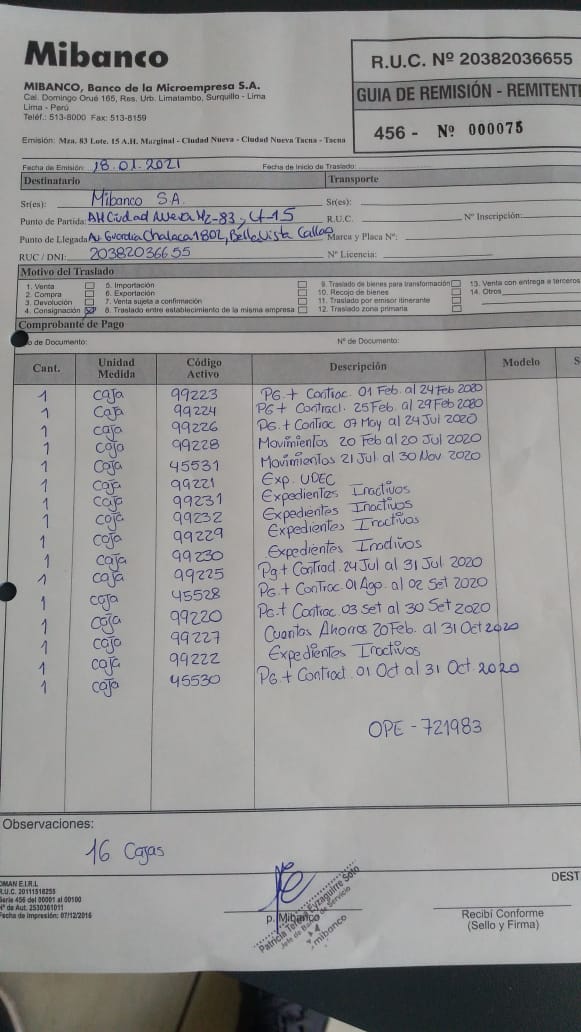 Mibanco
MIBANCO, Banco de la Microempresa S.A.
Cal. Domingo Orué 165, Res. Urb. Limatambo, Surquillo - Lima
Lima - Perú
Teléf.: 513-8000 Fax: 513-8159
Emisión: Mza. 83 Lote. 15 A.H. Marginal - Ciudad Nueva - Ciudad Nueva Tacna - Tacna
R.U.C. Nº 20382036655
GUIA DE REMISIÓN - REMITENTE
456 - Nº 000075
Fecha de Emisión: 18.01.2021 Fecha de Inicio de Traslado:
Destinatario Transporte
Sr(es): Mibanco S.A. Sr(es):
Punto de Partida: AH Ciudad Nueva Mz-83, Lt-15 R.U.C. Nº Inscripción:
Punto de Llegada: Av Guardia Chalaca 1802, Bellavista Callao Marca y Placa Nº:
RUC / DNI: 20382036655 Nº Licencia:
Motivo del Traslado
1. Venta 5. Importación 9. Traslado de bienes para transformación 13. Venta con entrega a terceros
2. Compra 6. Exportación 10. Recojo de bienes 14. Otros
3. Devolución 7. Venta sujeta a confirmación 11. Traslado por emisor itinerante
4. Consignación 8. Traslado entre establecimiento de la misma empresa 12. Traslado zona primaria
Comprobante de Pago
o de Documento: Nº de Documento:
Cant. Unidad Medida Código Activo Descripción Modelo S
1 caja 99223 PG. + Contrac. 01 Feb. al 24 Feb 2020
1 caja 99224 PG + Contracl. 25 Feb. al 29 Feb 2020
1 caja 99226 PG. + Contrac 07 May al 24 Jul 2020
1 caja 99228 Movimientos 20 Feb al 20 Jul 2020
1 caja 45531 Movimientos 21 Jul al 30 Nov 2020
1 caja 99221 Exp. UDEC
1 caja 99231 Expedientes Inactivos
1 caja 99232 Expedientes Inactivos
1 caja 99229 Expedientes Inactivos
1 caja 99230 Expedientes Inactivos
1 caja 99225 Pg + Contract. 24 Jul al 31 Jul 2020
1 caja 45528 PG. + Contrac. 01 Ago. al 02 Set 2020
1 caja 99220 PG. + Contrac 03 Set al 30 Set 2020
1 caja 99227 Cuentas Ahorros 20 Feb. al 31 Oct 2020
1 caja 99222 Expedientes Inactivos
1 caja 45530 PG. + Contract. 01 Oct al 31 Oct. 2020
OPE - 721983
Observaciones:
16 Cajas
OMAN E.I.R.L
R.U.C. 20111518255
Serie 456 del 00001 al 00100
Nº de Aut. 2530361011
Fecha de Impresión: 07/12/2016
DEST
p. Mibanco
Patricia Teresa Eyzaguirre Soto
Jefe de Banca de Servicio
mibanco
Recibí Conforme
(Sello y Firma)